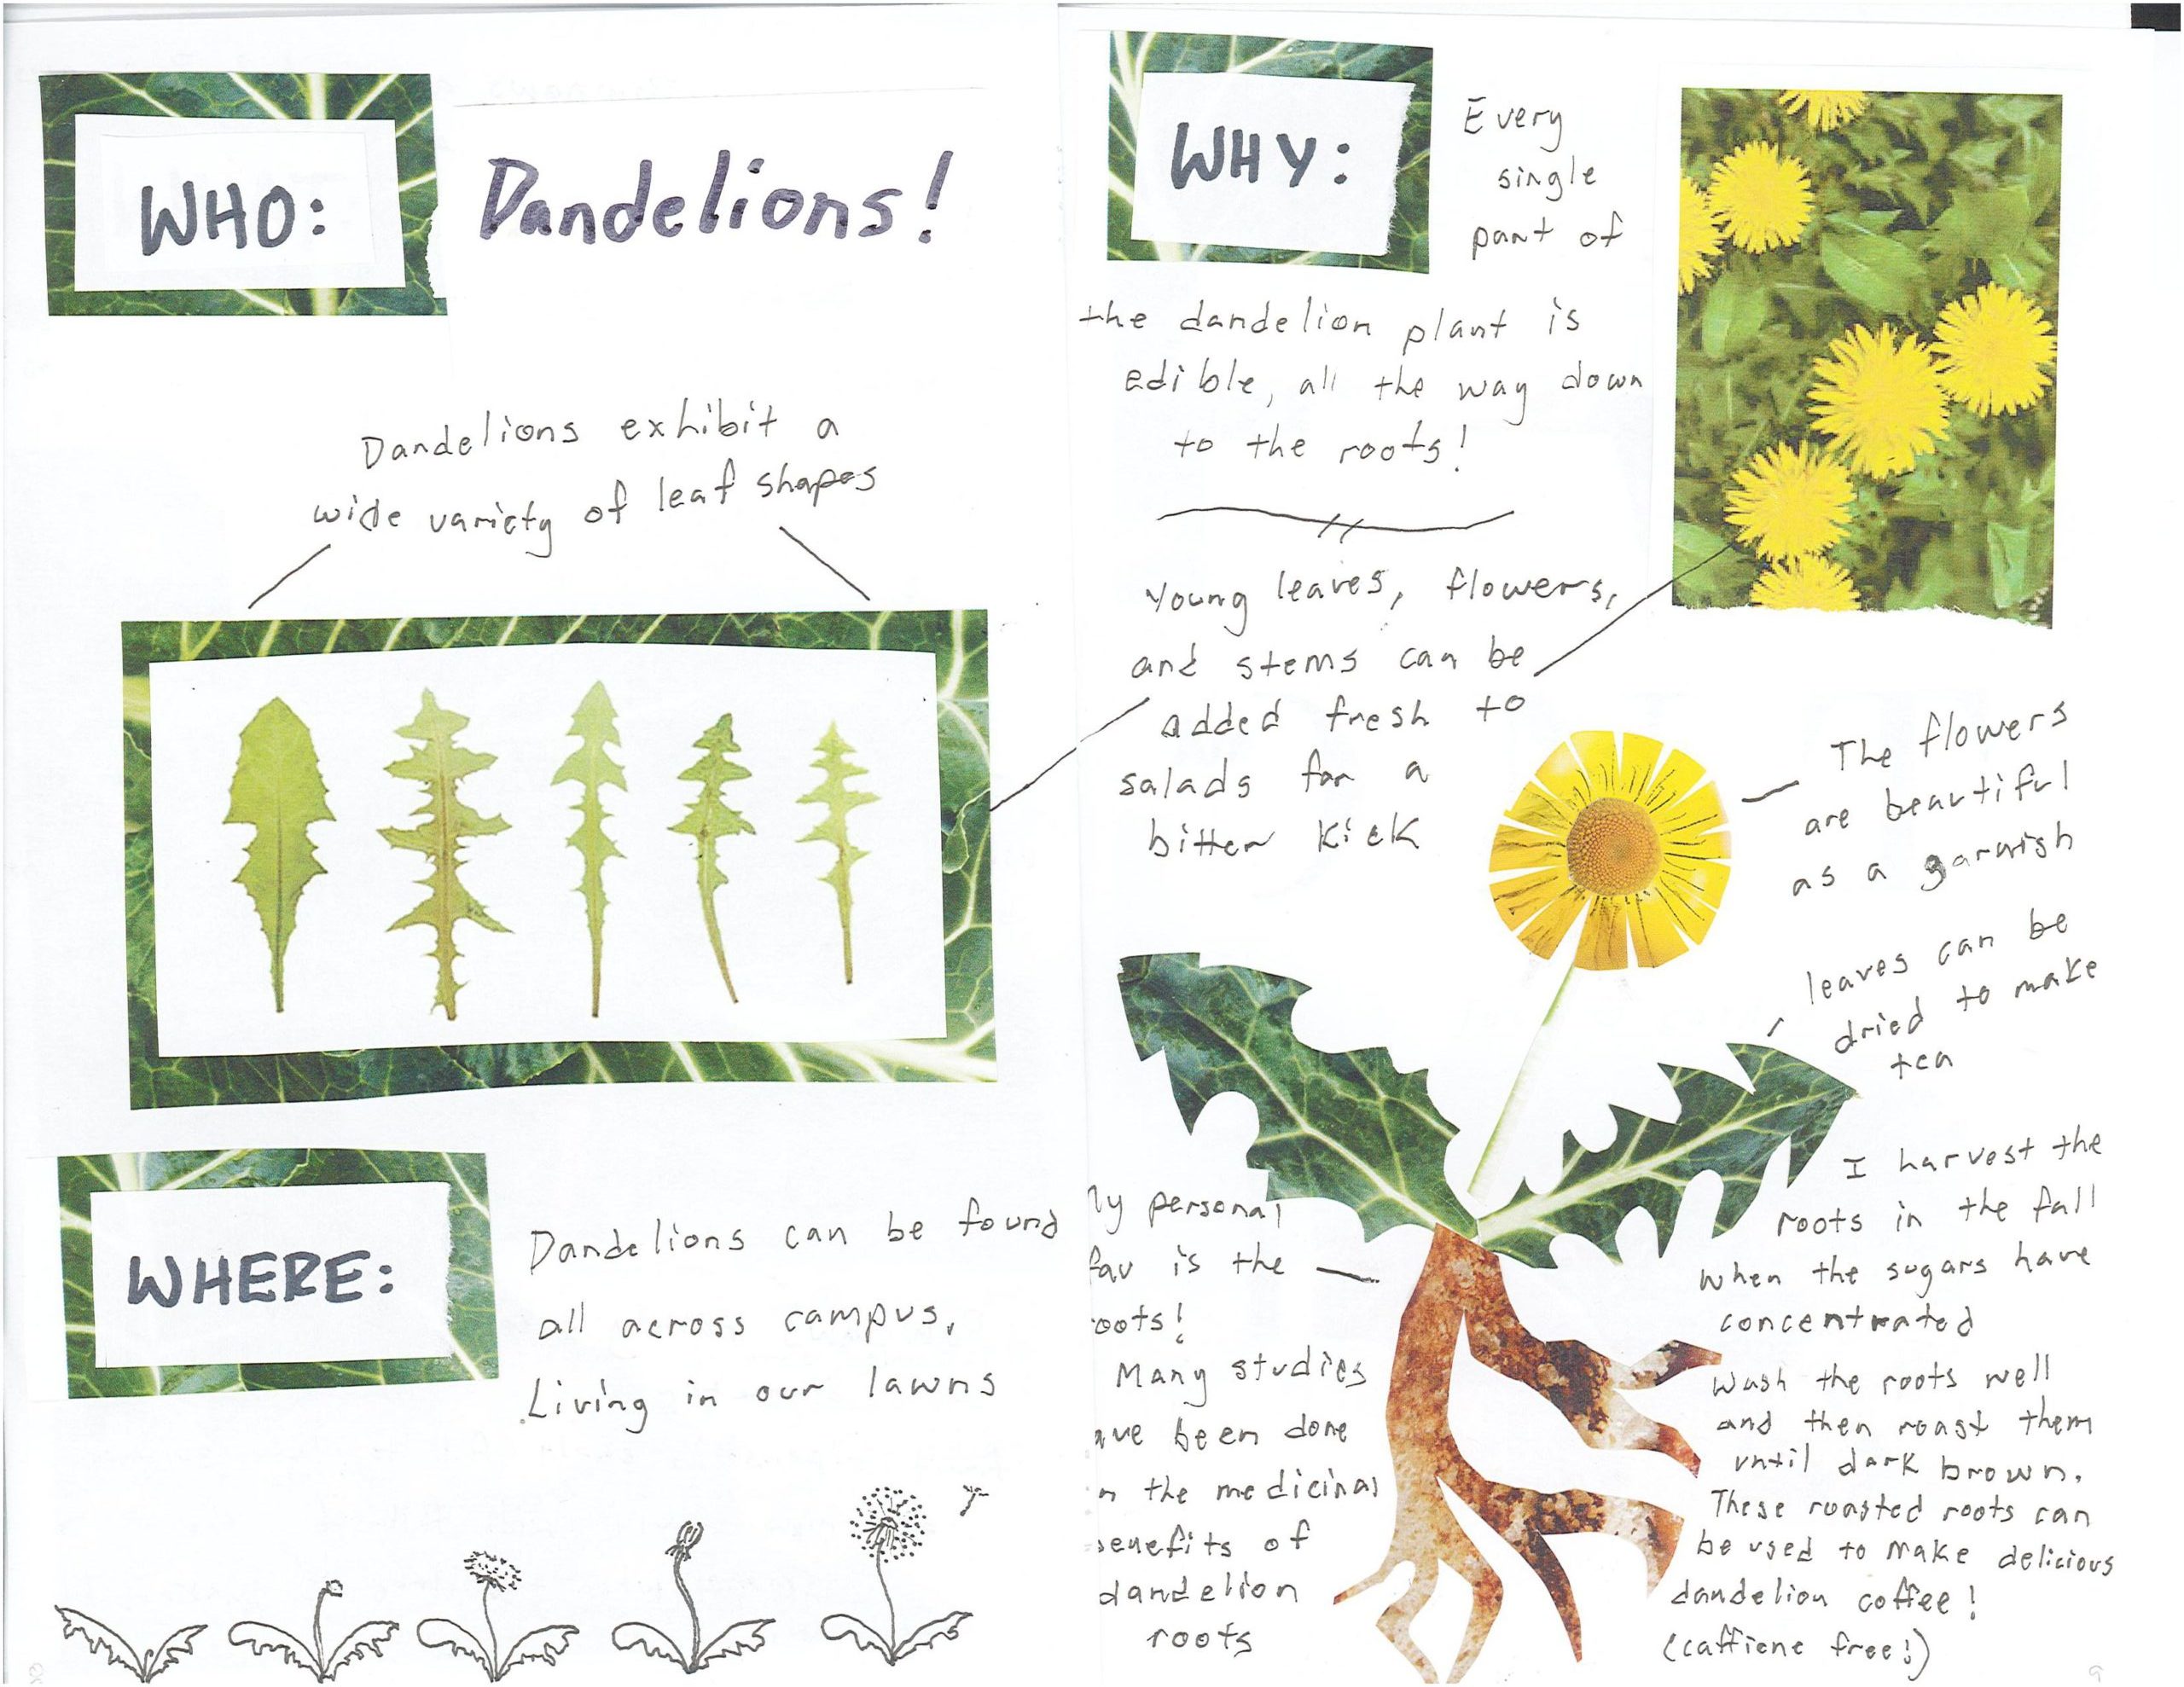 WHO:
Dandelions!
Dandelions exhibit a
wide variety of leaf shapes
WHERE:
Dandelions can be found
all across campus,
Living in our lawns
WHY:
Every
single
part of
the dandelion plant is
edible, all the way down
to the roots!
Young leaves, flowers,
and stems can be
added fresh to
salads for a
bitter kick
The flowers
are beautiful
as a garnish
leaves can be
dried to make
tea
My personal
fav is the
roots!
Many studies
ave been done
n the medicinal
benefits of
dandelion
roots
I harvest the
roots in the fall
when the sugars have
concentrated
Wash the roots well
and then roast them
until dark brown.
These roasted roots can
be used to make delicious
dandelion coffee!
(caffiene free!)